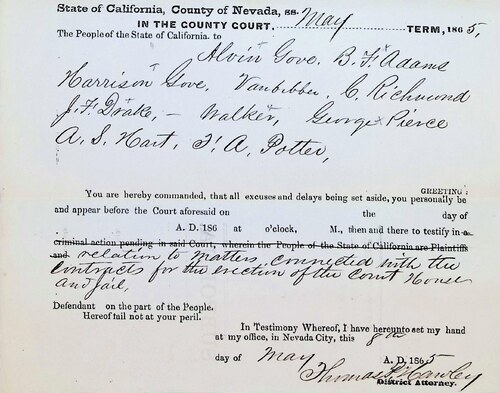 State of California, County of Nevada, ss.
IN THE COUNTY COURT, May TERM, 1865,
The People of the State of California, to
Alvin Gove, B. F. Adams
Harrison Gove, Vanbibber, C. Richmond
J. H. Drake, – Walker, George Pierce
A. S. Hart, F. A. Potter,
GREETING:
You are hereby commanded, that all excuses and delays being set aside, you personally be
and appear before the Court aforesaid on the day of
A. D. 186 at o'clock, M., then and there to testify in a
criminal action pending in said Court, wherein the People of the State of California are Plaintiffs
and relation to matters, connected with the
contracts for the erection of the Court House
and Jail,
Defendant on the part of the People.
Hereof fail not at your peril.
In Testimony Whereof, I have hereunto set my hand
at my office, in Nevada City, this 8th
day of May A. D. 1865
Thomas P. Hawley
District Attorney.